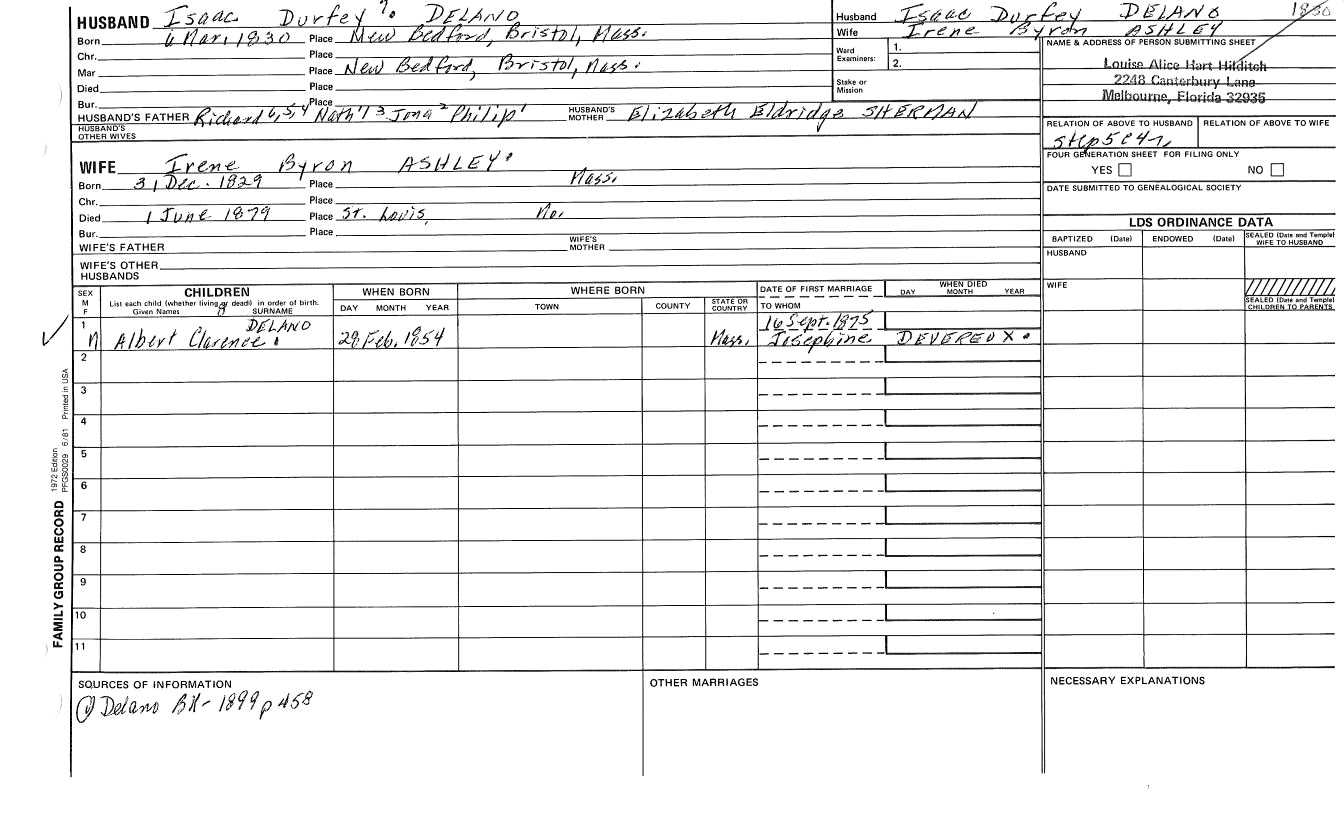 HUSBAND Isaac Durfey 7. DELANO
Born 6 Mar. 1830 Place New Bedford, Bristol, Mass.
Chr. Place
Mar Place New Bedford, Bristol, Mass.
Died Place
Bur. Place
HUSBAND'S FATHER Richard 6,5,4 Nath'l 3 Jona 2 Philip 1 HUSBAND'S MOTHER Elizabeth Eldridge SHERMAN
HUSBAND'S OTHER WIVES
WIFE Irene Byron ASHLEY
Born 31 Dec. 1829 Place Mass.
Chr. Place
Died 1 June 1879 Place St. Louis, Mo.
Bur. Place
WIFE'S FATHER WIFE'S MOTHER
WIFE'S OTHER HUSBANDS
Husband Isaac Durfey DELANO 1830
Wife Irene Byron ASHLEY
Ward Examiners: 1.
2.
Stake or Mission
NAME & ADDRESS OF PERSON SUBMITTING SHEET
Louise Alice Hart Hilditch
2248 Canterbury Lane
Melbourne, Florida 32935
RELATION OF ABOVE TO HUSBAND RELATION OF ABOVE TO WIFE
FOUR GENERATION SHEET FOR FILING ONLY
YES NO
DATE SUBMITTED TO GENEALOGICAL SOCIETY
LDS ORDINANCE DATA
BAPTIZED (Date) ENDOWED (Date) SEALED (Date and Temple) WIFE TO HUSBAND
HUSBAND
WIFE
SEALED (Date and Temple) CHILDREN TO PARENTS
SEX M F CHILDREN WHEN BORN WHERE BORN DATE OF FIRST MARRIAGE WHEN DIED
List each child (whether living or dead) in order of birth. Given Names SURNAME DAY MONTH YEAR TOWN COUNTY STATE OR COUNTRY TO WHOM DAY MONTH YEAR
1 DELANO 16 Sept. 1875
M Albert Clarence 28 Feb. 1854 Mass. Josephine DEVEREUX
2
3
4
5
6
7
8
9
10
11
FAMILY GROUP RECORD 1972 Edition PFGS0029 6/81 Printed in USA
SOURCES OF INFORMATION OTHER MARRIAGES NECESSARY EXPLANATIONS
Delano 1899 p 458